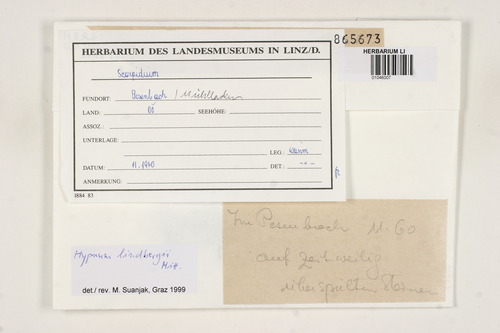 865673
HERBARIUM LI
01046007
HERBARIUM DES LANDESMUSEUMS IN LINZ/D.
Scorpidium
FUNDORT: / Mühllacken
LAND: OÖ SEEHÖHE:
ASSOZ.:
UNTERLAGE:
LEG.:
DATUM: 11.1960 DET.: - - -
ANMERKUNG:
I884 83
Hypnum lindbergii
Mitt.
det./ rev. M. Suanjak, Graz 1999
Im Pesenbach 11.60
auf zeitweilig
überspülten Steinen